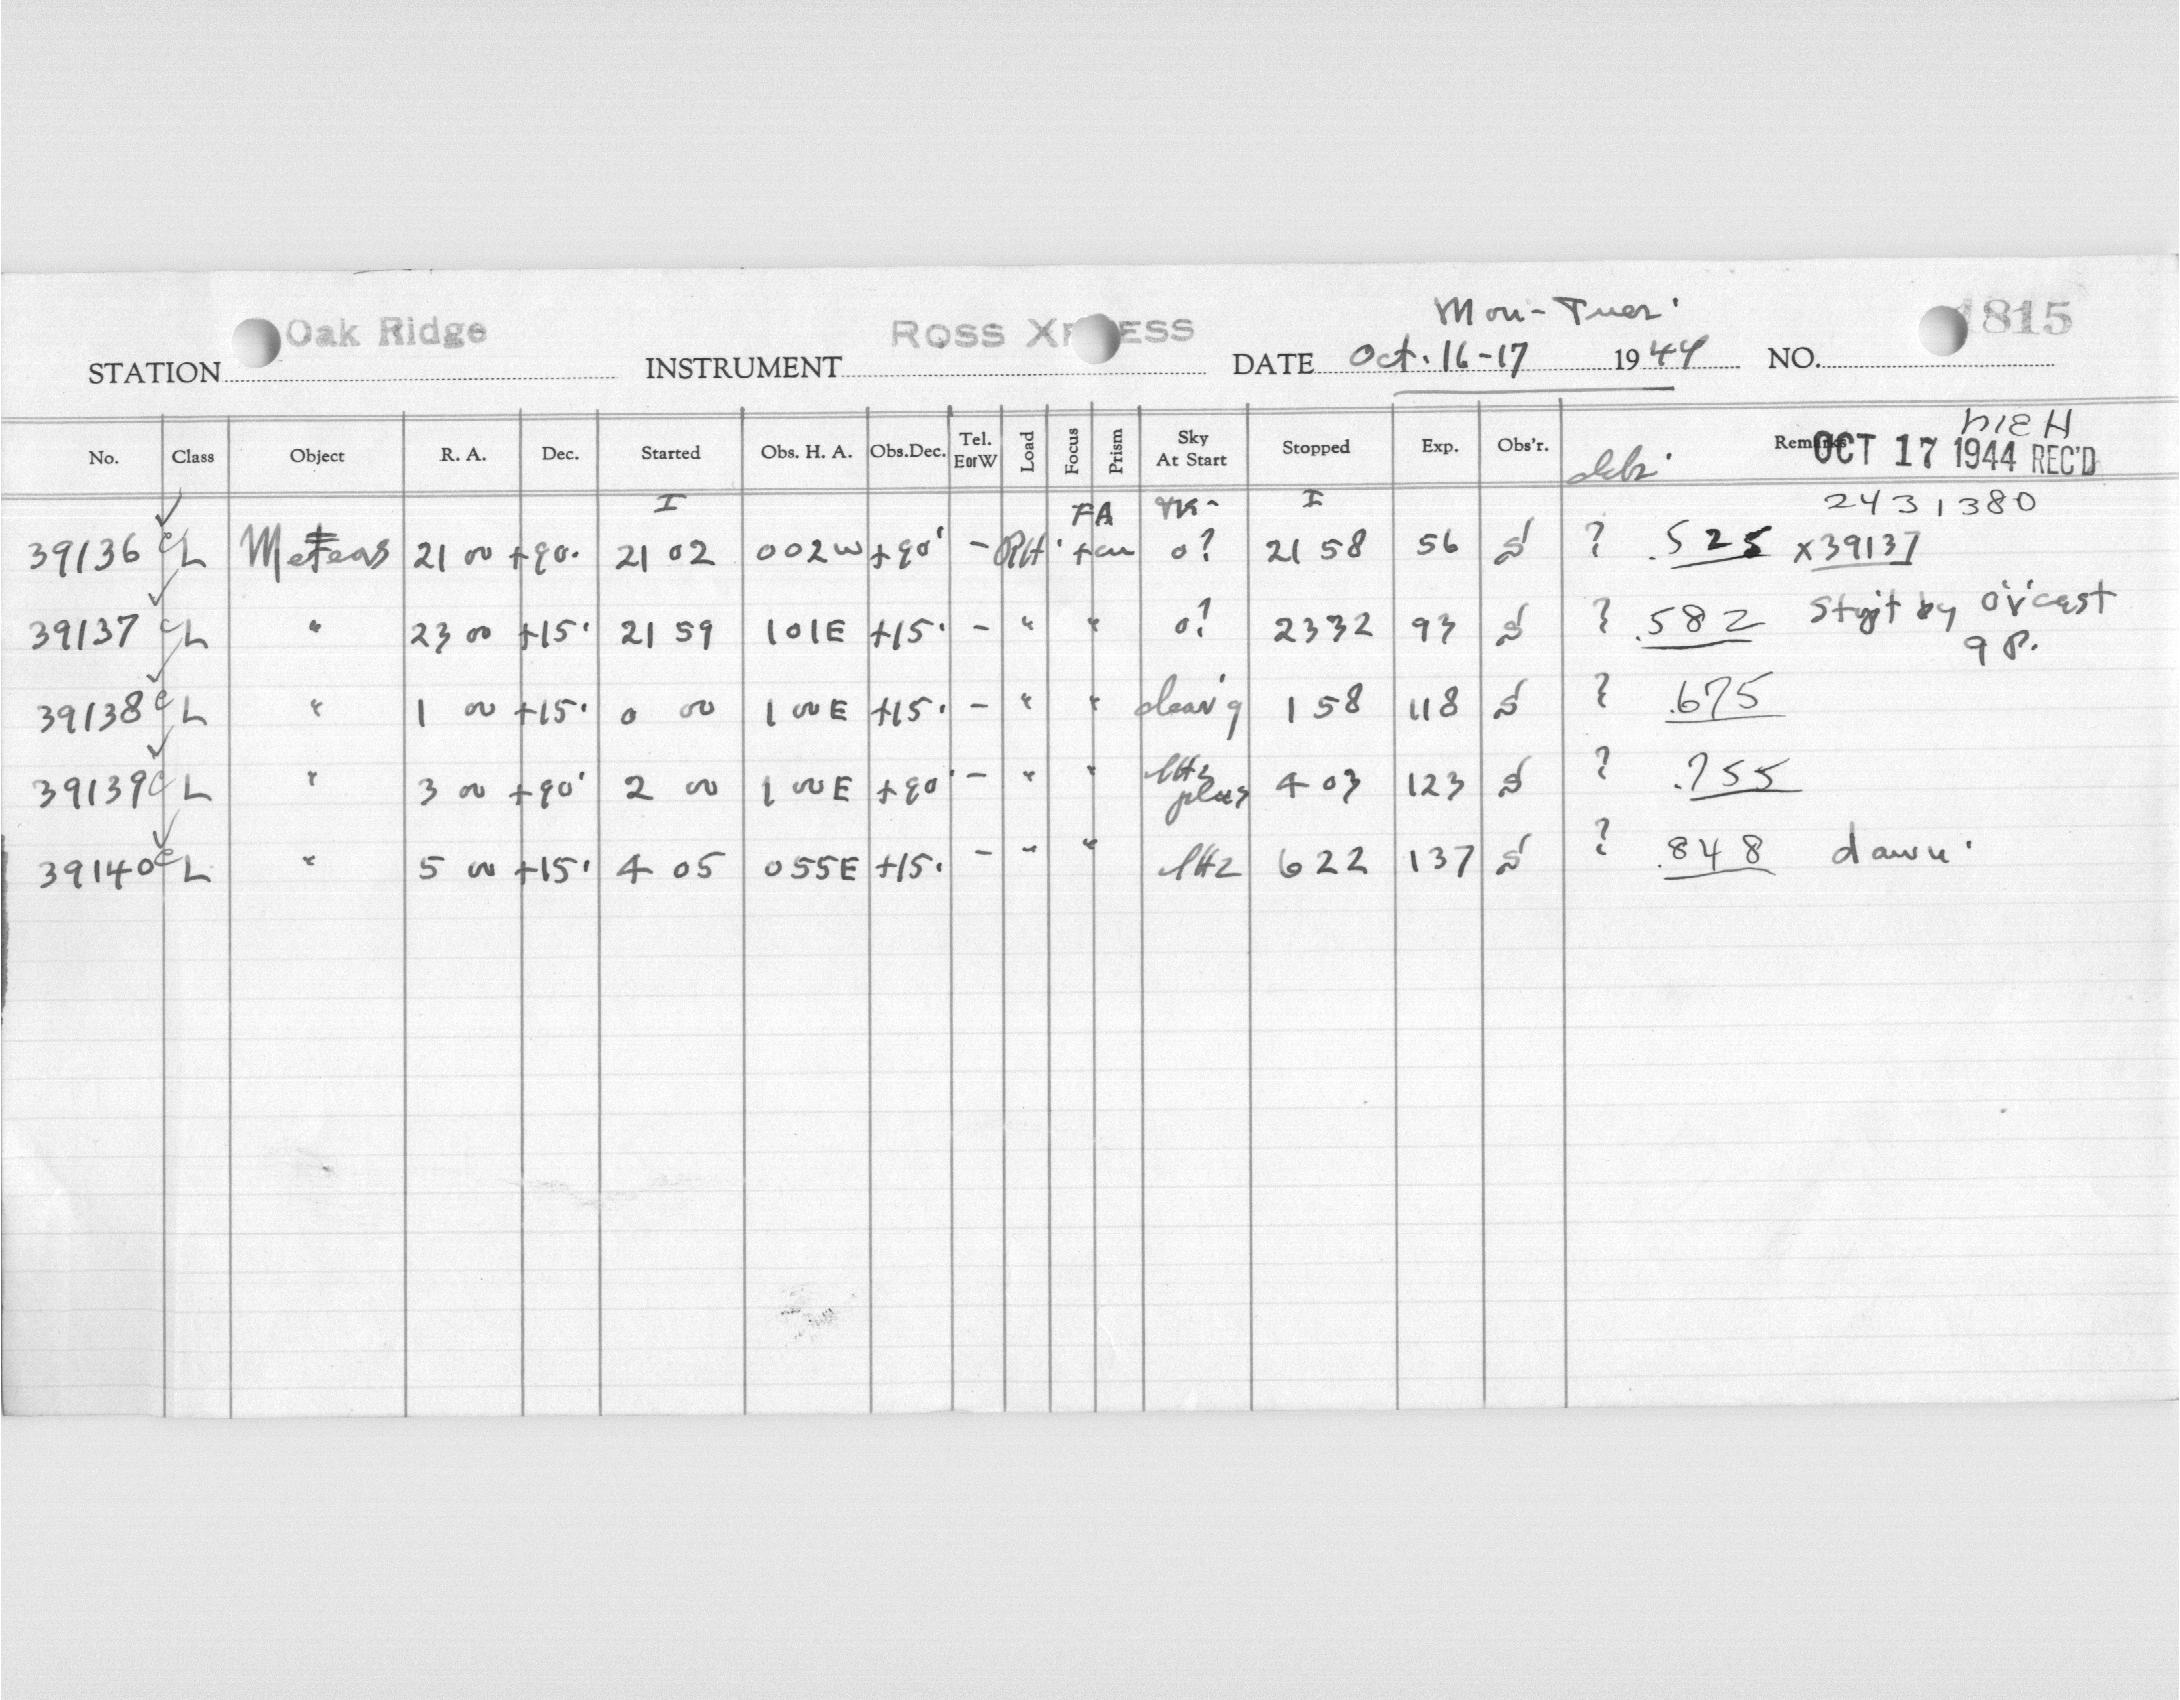 Mon-Tues.
STATION Oak Ridge INSTRUMENT ROSS XPRESS DATE Oct. 16-17 1944 NO. 1815
No. Class Object R. A. Dec. Started Obs. H. A. Obs.Dec. Tel. EorW Load Focus Prism Sky At Start Stopped Exp. Obs'r. Remarks OCT 17 1944 REC'D
I FA I 2431380
39136 cL Meteors 21 00 +90. 21 02 002W +90' - RH. o? 21 58 56 S ? .525 x39137
39137 cL " 23 00 +15. 21 59 101E +15. - " " o? 2332 93 S ? .582 by o'v'cast
9 P.
39138 cL " 1 00 +15. 0 00 1 00E +15. - " " clear'g 1 58 118 S ? .675
39139 cL " 3 00 +90' 2 00 1 00E +90' - " " lHz plus 4 03 123 S ? .755
39140 cL " 5 00 +15. 4 05 055E +15. - " " lHz 6 22 137 S ? .848 dawn.